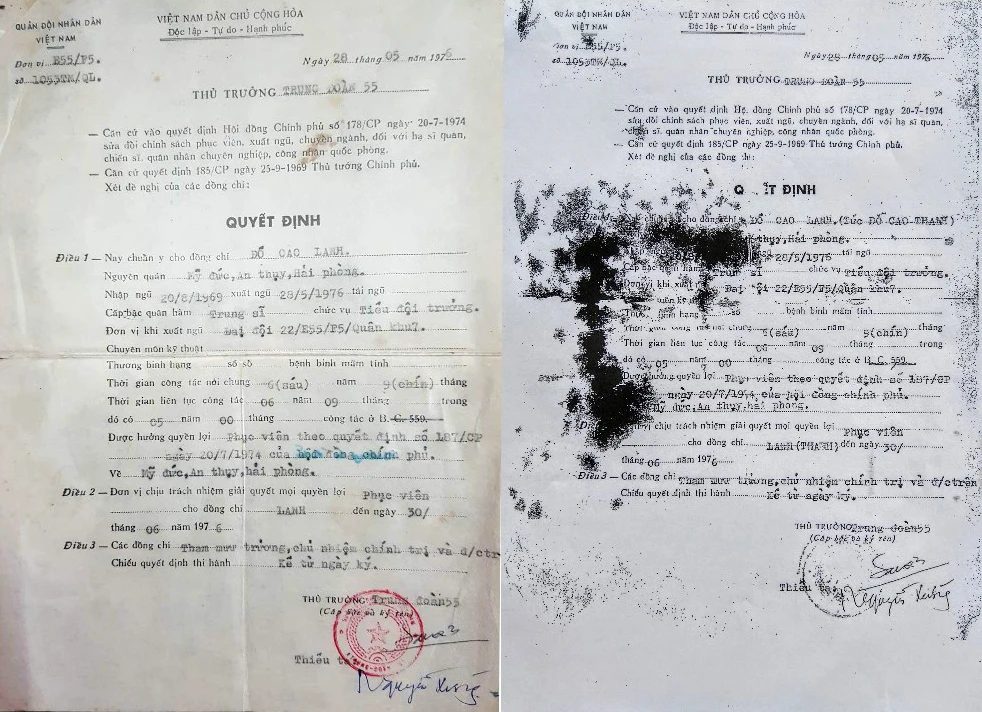 QUÂN ĐỘI NHÂN DÂN
VIỆT NAM
Đơn vị E55/F5.
số 1053TM/QL.
VIỆT NAM DÂN CHỦ CỘNG HÒA
Độc lập - Tự do - Hạnh phúc
Ngày 28 tháng 05 năm 1976
THỦ TRƯỞNG TRUNG ĐOÀN 55
— Căn cứ vào quyết định Hội đồng Chính phủ số 178/CP ngày 20-7-1974
sửa đổi chính sách phục viên, xuất ngũ, chuyển ngành, đối với hạ sĩ quan,
chiến sĩ, quân nhân chuyên nghiệp, công nhân quốc phòng.
— Căn cứ quyết định 185/CP ngày 25-9-1969 Thủ tướng Chính phủ.
Xét đề nghị của các đồng chí:
QUYẾT ĐỊNH
Điều 1 — Nay chuẩn y cho đồng chí ĐỖ CAO LANH.
Nguyên quán Mỹ đức,An thụy,Hải phòng.
Nhập ngũ 20/8/1969 xuất ngũ 28/5/1976 tái ngũ
Cấp bậc quân hàm Trung sĩ chức vụ Tiểu đội trưởng.
Đơn vị khi xuất ngũ Đại đội 22/E55/F5/Quân khu7.
Chuyên môn kỹ thuật
Thương binh hạng số sổ bệnh binh mãm tính
Thời gian công tác nói chung 6(sáu) năm 9(chín) tháng
Thời gian liên tục công tác 06 năm 09 tháng trong
đó có 05 năm 00 tháng công tác ở B. C. 559.
Được hưởng quyền lợi Phục viên theo quyết định số 187/CP
ngày 20/7/1974 của hội đồng chính phủ.
Về Mỹ đức,An thụy,hải phòng.
Điều 2 — Đơn vị chịu trách nhiệm giải quyết mọi quyền lợi Phục viên
cho đồng chí LANH đến ngày 30/
tháng 06 năm 1976
Điều 3 — Các đồng chí Tham mưu trưởng,chủ nhiệm chính trị và đ/ctr
Chiểu quyết định thi hành Kể từ ngày ký.
THỦ TRƯỞNG Trung đoàn55
(Cấp bậc và ký tên)
Thiếu tá
Nguyễn Xưởng
QUÂN ĐỘI NHÂN DÂN
VIỆT NAM
Đơn vị E55/F5.
số 1053TM/QL.
VIỆT NAM DÂN CHỦ CỘNG HÒA
Độc lập - Tự do - Hạnh phúc
Ngày 28 tháng 05 năm 1976
THỦ TRƯỞNG TRUNG ĐOÀN 55
— Căn cứ vào quyết định Hội đồng Chính phủ số 178/CP ngày 20-7-1974
sửa đổi chính sách phục viên, xuất ngũ, chuyển ngành, đối với hạ sĩ quan,
chiến sĩ, quân nhân chuyên nghiệp, công nhân quốc phòng.
— Căn cứ quyết định 185/CP ngày 25-9-1969 Thủ tướng Chính phủ.
Xét đề nghị của các đồng chí:
QUYẾT ĐỊNH
cho đồng chí ĐỖ CAO LANH.(Tức ĐỖ CAO THANH)
thụy,Hải phòng.
28/5/1976 tái ngũ
Cấp bậc quân hàm Trung sĩ chức vụ Tiểu đội trưởng.
Đơn vị Đại đội 22/E55/F5/Quân khu7.
kỹ th
Thươ hạng bệnh binh mãm tính
Thời gian công tác nói chung 6(sáu) năm 9(chín) tháng
Thời gian liên tục công tác 06 năm 09 tháng trong
đó có 05 năm 00 tháng công tác ở B. C. 559.
Được hưởng quyền lợi Phục viên theo quyết định số 187/CP
ngày 20/7/1974 của hội đồng chính phủ.
Mỹ đức,An thụy,hải phòng.
vị chịu trách nhiệm giải quyết mọi quyền lợi Phục viên
cho đồng chí LANH(THANH) đến ngày 30/
tháng 06 năm 1976
Điều 3 — Các đồng chí Tham mưu trưởng,chủ nhiệm chính trị và đ/ctrên
Chiểu quyết định thi hành Kể từ ngày ký.
THỦ TRƯỞNG Trung đoàn55
(Cấp bậc và ký tên)
Thiếu tá
Nguyễn Xưởng